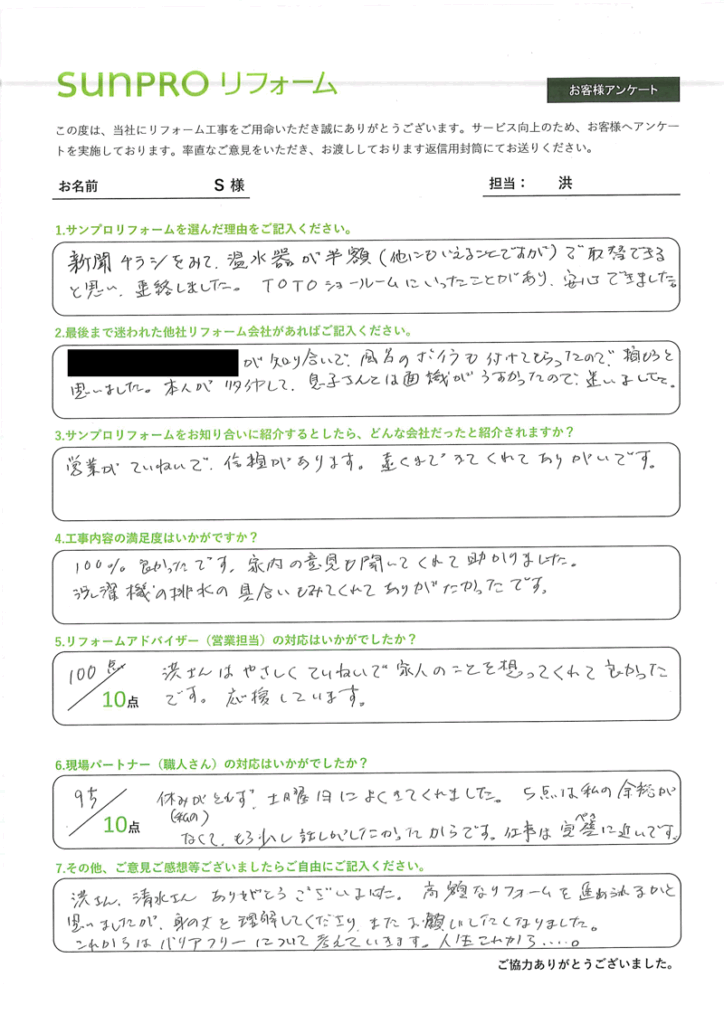 SUNPRO リフォーム
お客様アンケート
この度は、当社にリフォーム工事をご用命いただき誠にありがとうございます。サービス向上のため、お客様へアンケー
トを実施しております。率直なご意見をいただき、お渡ししております返信用封筒にてお送りください。
お名前 S 様 担当： 洪
1.サンプロリフォームを選んだ理由をご記入ください。
新聞チラシをみて、温水器が半額(他にもいえることですが)で取替できる
と思い、連絡しました。TOTOショールームにいったことがあり、安心できました。
2.最後まで迷われた他社リフォーム会社があればご記入ください。
が知り合いで、風呂のボイラも付けてもらったので、頼もうと
思いました。本人が 息子さんとは面識がうすかったので、迷いました。
3.サンプロリフォームをお知り合いに紹介するとしたら、どんな会社だったと紹介されますか？
営業がていねいで、信頼があります。遠くまできてくれてありがたいです。
4.工事内容の満足度はいかがですか？
100% 良かったです。家内の意見も聞いてくれて助かりました。
洗濯機の排水の具合いもみてくれてありがたかったです。
5.リフォームアドバイザー（営業担当）の対応はいかがでしたか？
100点／10点
洪さんはやさしくていねいで家人のことを想ってくれて良かった
です。応援しています。
6.現場パートナー（職人さん）の対応はいかがでしたか？
95／10点
休みがとれず、土日曜日によくきてくれました。5点は私の余裕が
(私の)
なくて、もう少し話しがしたかったからです。仕事は完璧に近いです。
ペキ
7.その他、ご意見ご感想等ございましたらご自由にご記入ください。
洪さん、清水さん ありがとうございました。高額なリフォームを進められるかと
思いましたが、身の丈を理解してくださり、またお願いしたくなりました。
これからはバリアフリーについて考えていきます。人生これから.....。
ご協力ありがとうございました。